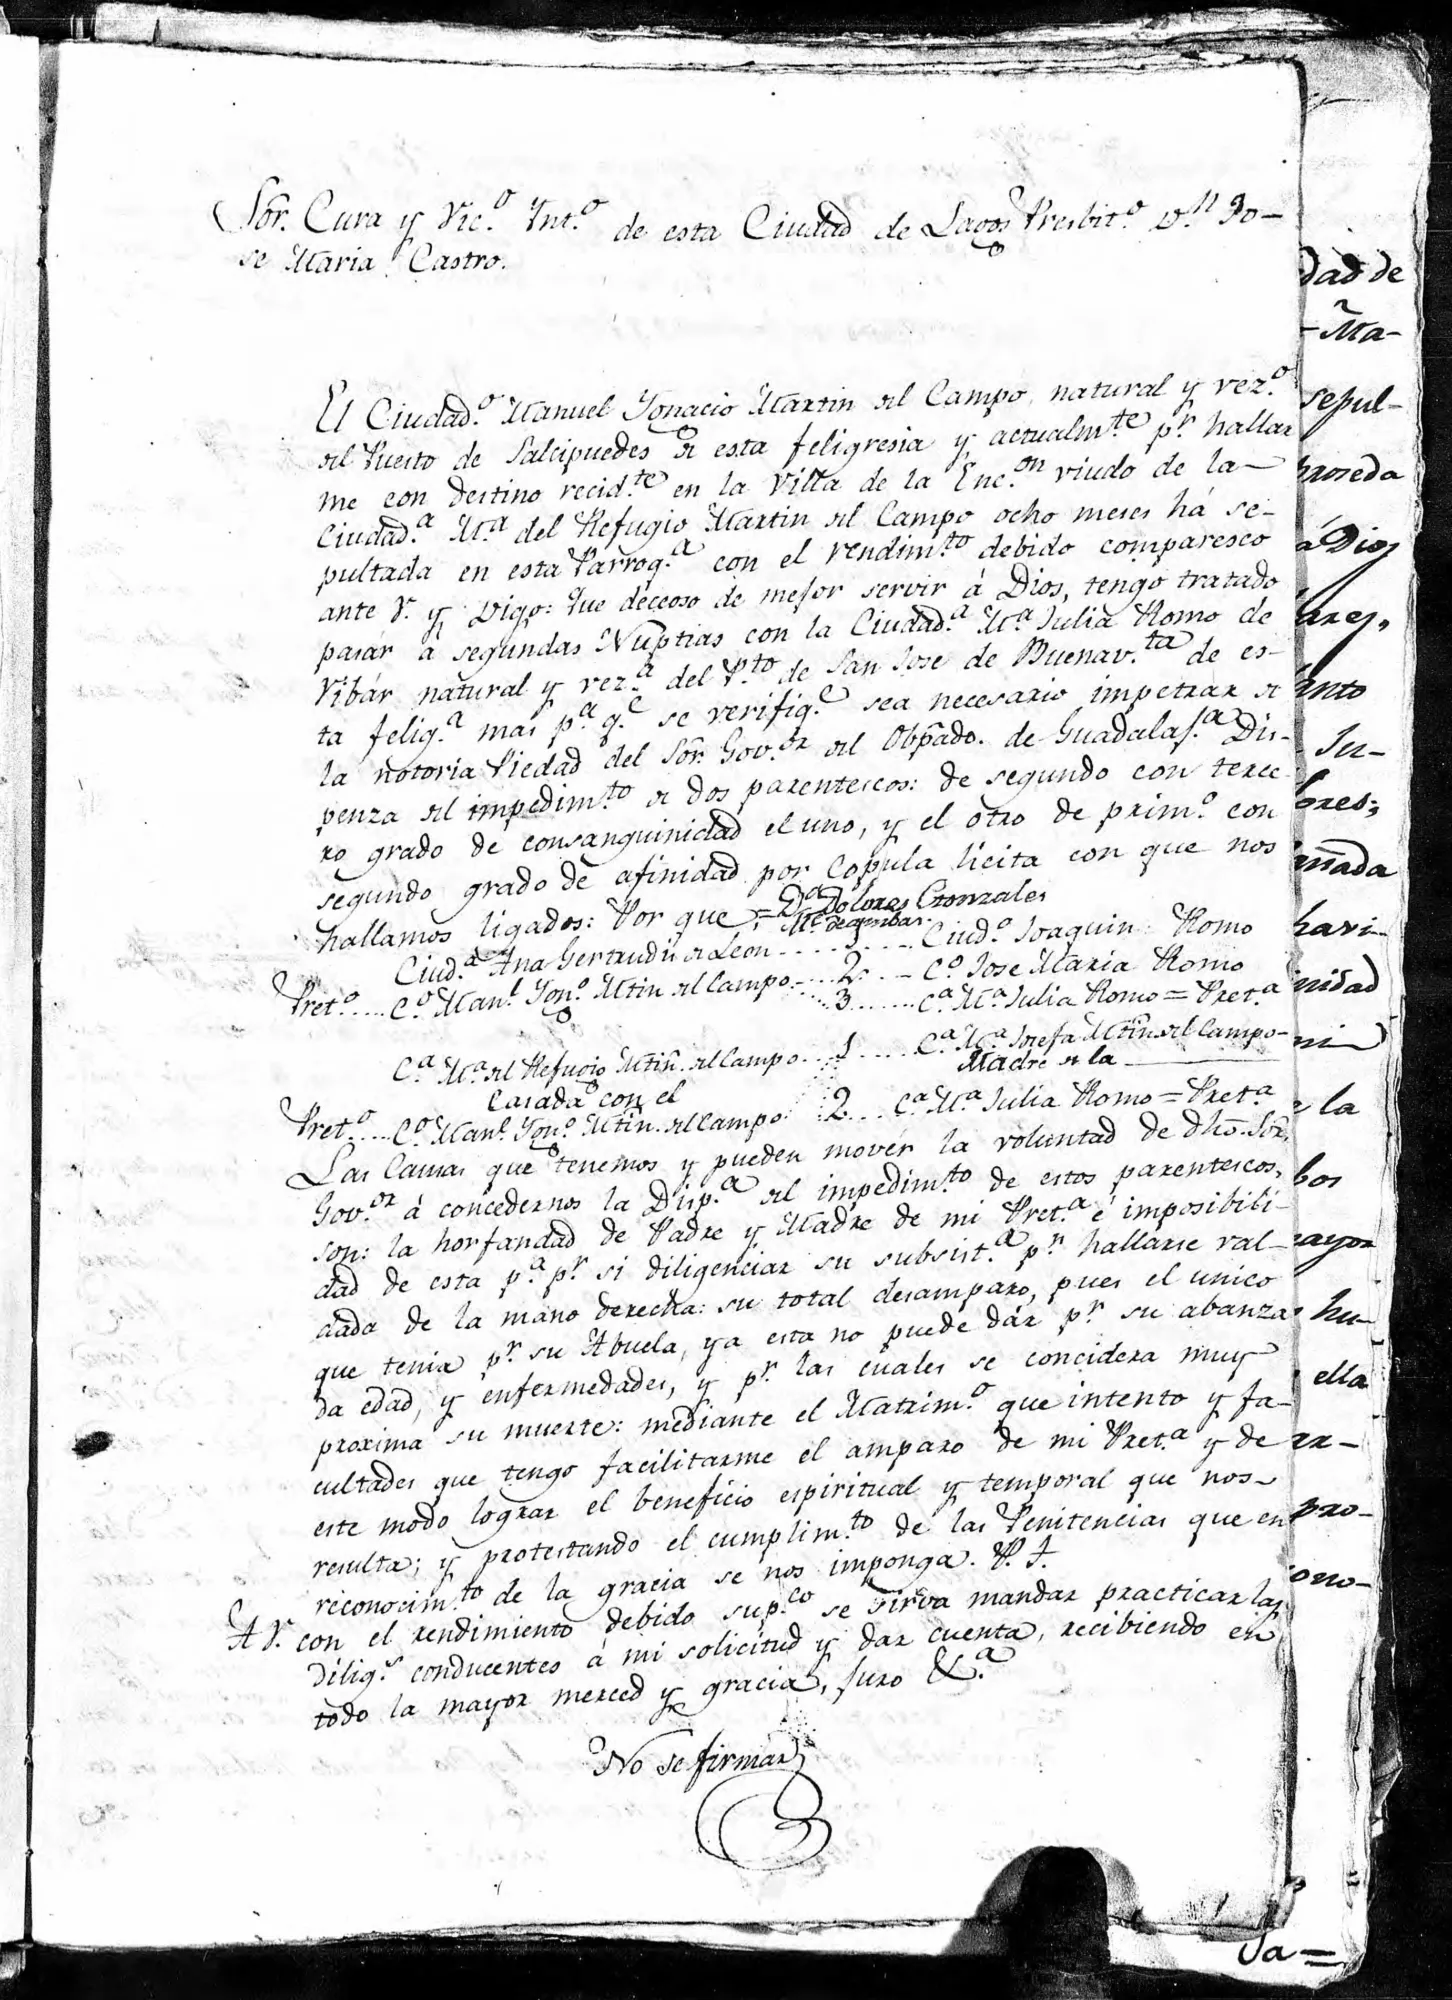 Sōr. Cura y Vic.º Ynt.º de esta Ciudad de Lagos Presbit.º D.ⁿ Jo-
se Maria Castro.
El Ciudad.º Manuel Ygnacio Martin del Campo, natural y vez.º
del Puesto de Salsipuedes de esta feligresia y actualm.te p.r hallar
me con destino recid.te en la Villa de la Enc.on viudo de la
Ciudad.a M.a del Refugio Martin del Campo ocho meses há se-
pultada en esta Parroq.a con el rendim.to debido comparesco
ante V. y Digo: Que deceoso de mejor servir á Dios, tengo tratado
pasár á segundas Nuptias con la Ciudad.a M.a Julia Romo de
Vibár natural y vez.a del P.to de San Jose de Buenav.ta de es-
ta felig.a mas p.a q.e se verifiq.e sea necesario impetrar de
la notoria Piedad del Sōr. Gov.or del Obp̄ado. de Guadalaj.a Dis-
penza del impedim.to de dos parentescos: de segundo con terce
ro grado de consanguinidad el uno, y el otro de prim.º con
segundo grado de afinidad por Copula licita con que nos
hallamos ligados: Por que = D.a Dolores Gonzales
Ciud.a Ana Gertrudis de Leon ..... 1 ..... Ciud.º Joaquin Romo
Pret.º .... C.º Man.l Ygn.º Mtin. del Campo .... 2 ... C.º Jose Maria Romo
3 ...... C.a M.a Julia Romo = Pret.a
C.a M.a del Refugio Mtiñ. del Campo ... 1 ..... C.a M.a Josefa Mtiñ. del Campo-
Casada con el Madre de la
Pret.º .... C.º Man.l Ygn.º Mtin. del Campo 2 ... C.a M.a Julia Romo = Pret.a
Las Causas que tenemos y pueden movér la voluntad de dhō. Sōr.
Gov.or á concedernos la Disp.a del impedim.to de estos parentescos,
son: la horfandad de Padre y Madre de mi Pret.a é imposibili-
dad de esta p.a p.r si diligenciar su subsist.a p.r hallarse val-
dada de la mano derecha: su total desamparo, pues el unico
que tenia p.r su Abuela, ya esta no puede dár p.r su abanza
da edad, y enfermedades, y p.r las cuales se concidera muy
proxima su muerte: mediante el Matrim.º que intento y fa-
cultades que tengo facilitarme el amparo de mi Pret.a y de
este modo lograr el beneficio espiritual y temporal que nos
resulta; y protestando el cumplim.to de las Penitencias que en
reconocim.to de la gracia se nos imponga. P. J.
A V. con el rendimiento debido sup.co se sirva mandar practicar las
dilig.s conducentes á mi solicitud y dar cuenta, recibiendo en
todo la mayor merced y gracia, juro &.a
No se firmar
dad de
Ma-
sepul-
á Dios
ella
pro-
Sa=